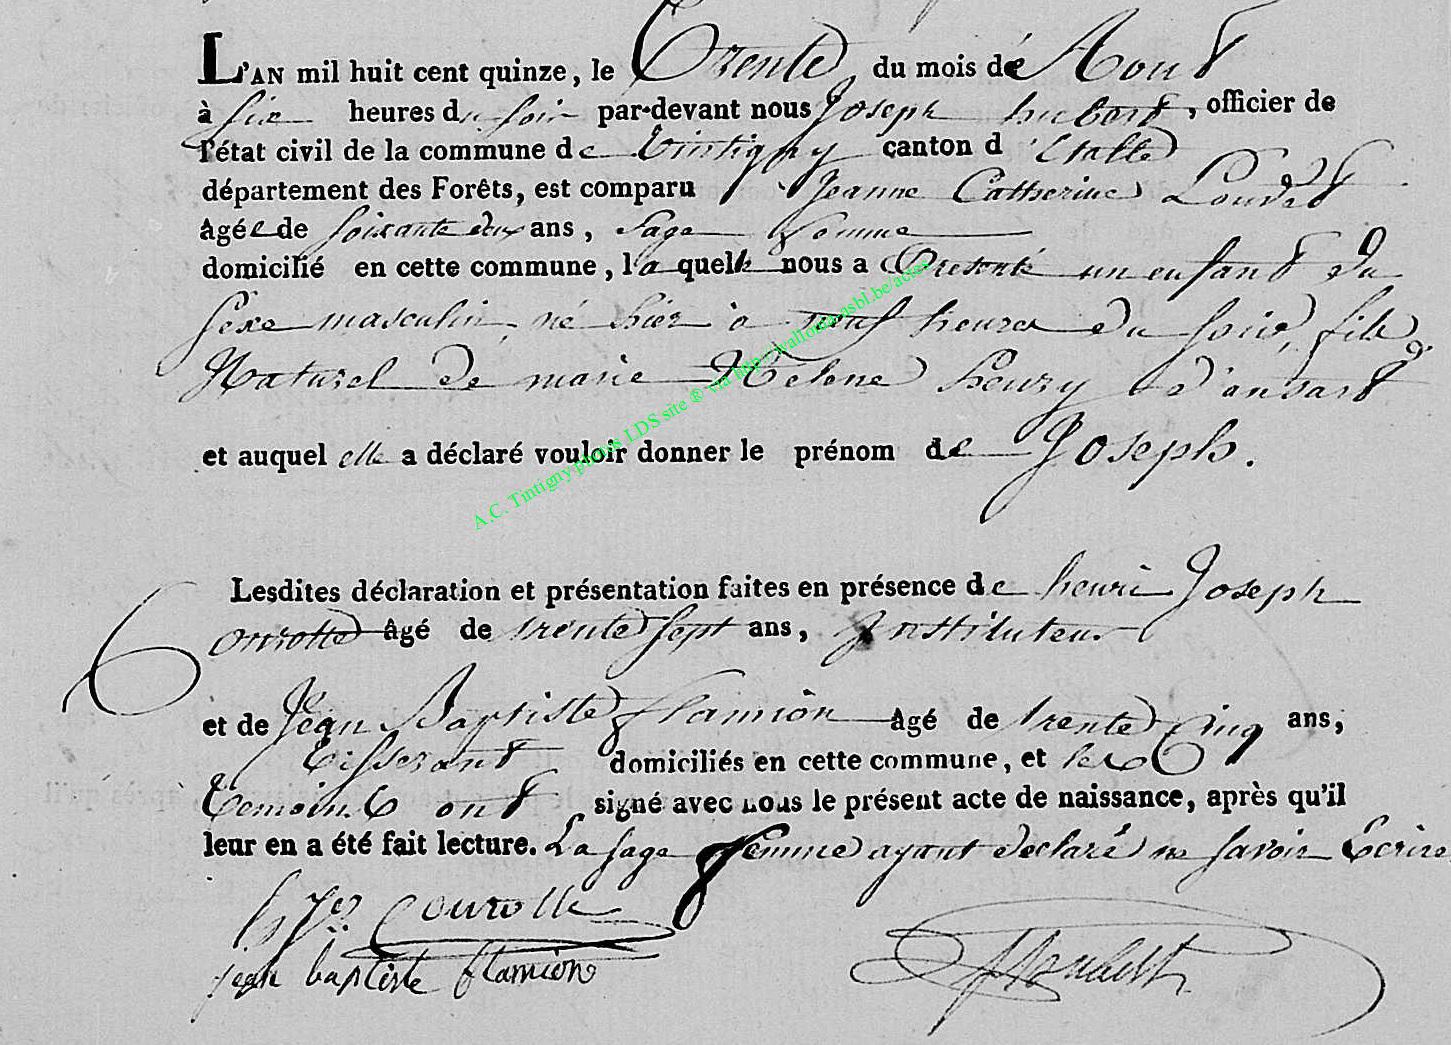 L'AN mil huit cent quinze, le Trente du mois de Aout
à six heures du soir par-devant nous Joseph hubert, officier de
l'état civil de la commune de Tintigny canton d'Etalle
département des Forêts, est comparu Jeanne Catherine Loudet
âgée de soixante deux ans, sage femme
domicilié en cette commune, laquelle nous a Presenté un enfant du
sexe masculin né hier à neuf heures du soir, fils
Naturel de marie Helene henry d'ansart
et auquel elle a déclaré vouloir donner le prénom de Joseph.
A.C. Tintigny photos LDS site ® via http://wallonia-asbl.be/actes
Lesdites déclaration et présentation faites en présence de henri Joseph
Courotte âgé de trente sept ans, Instituteur
et de Jean Baptiste flamion âgé de trente Cinq ans,
tisserant domiciliés en cette commune, et les
temoins ont signé avec nous le présent acte de naissance, après qu'il
leur en a été fait lecture. La sage femme ayant declaré ne savoir Ecrire
h Jos Courotte
jean baptiste flamion